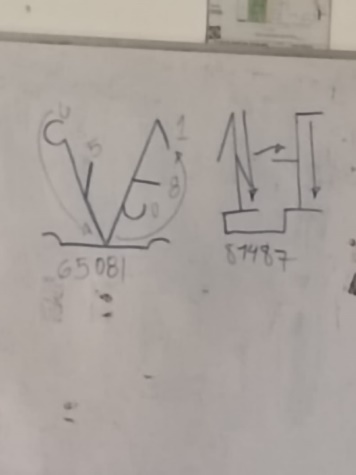 6
5
1
8
0
65081
81487